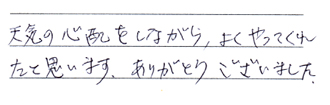 天気の心配をしながら, よくやってくれ
たと思います. ありがとうございました.